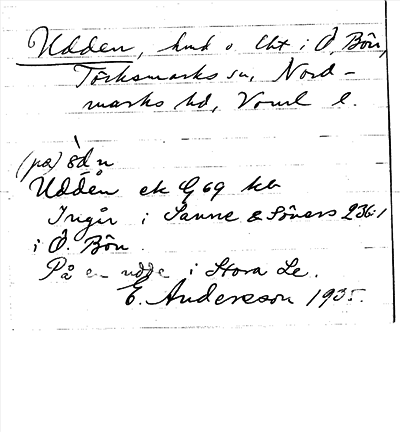 Udden, hmd o. lht i Ö. Bön,
Töcksmarks sn, Nord-
marks hd, Vrml l.
(på) ùdn
Uddén ek G 69 kb
Ingår i Sanne & Sövers 236:1
i Ö. Bön.
På en udde i Stora Le.
E. Andersson 1935.